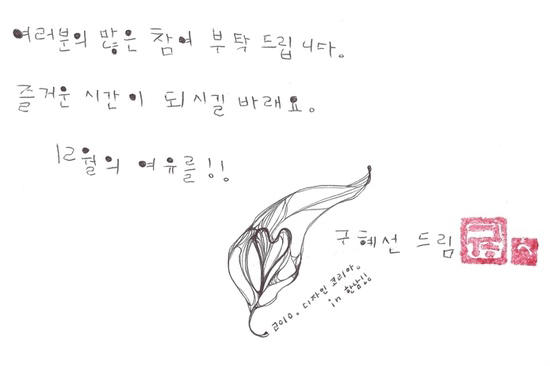 여러분의 많은 참여 부탁드립니다.
즐거운 시간이 되시길 바래요.
12월의 여유를!!
구혜선 드림
2010. 디자인 코리아.
in 한남!!